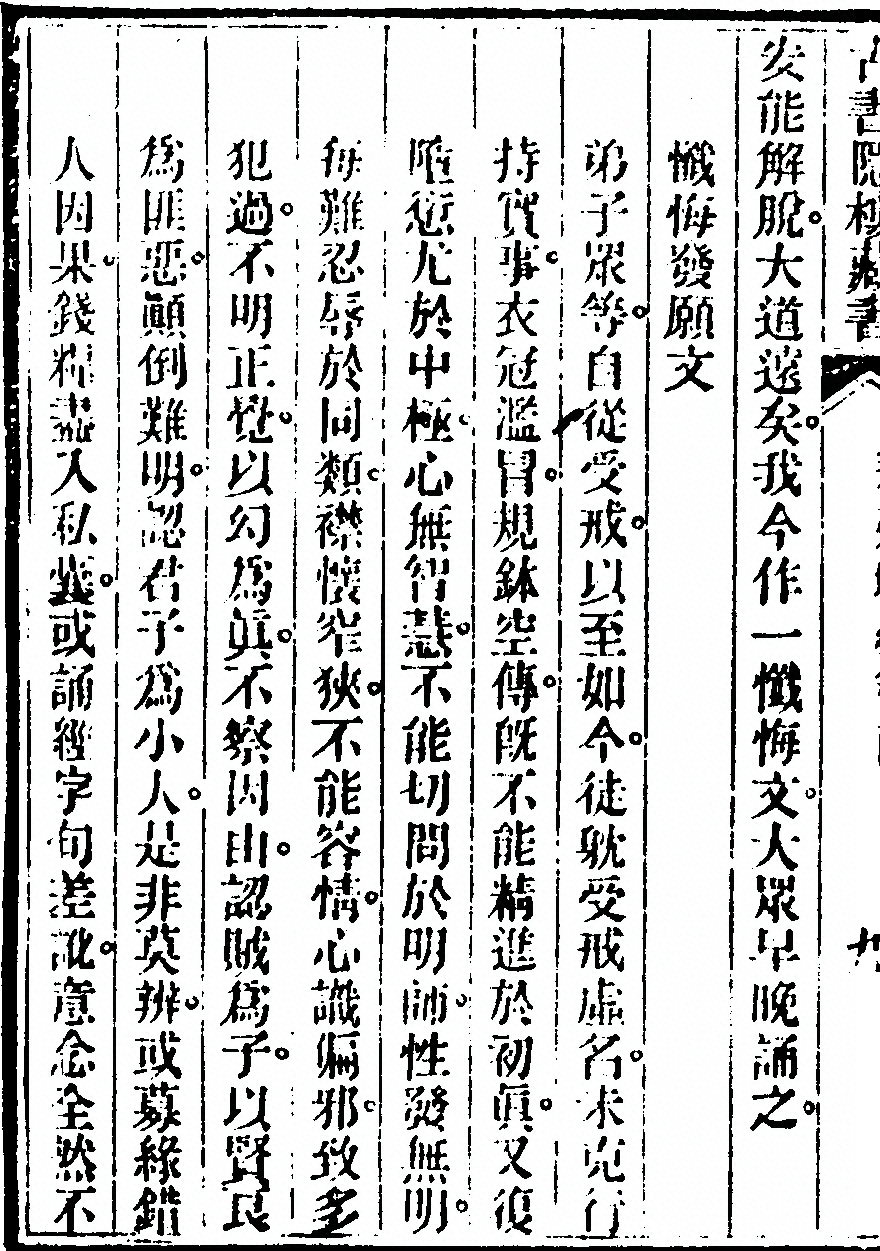 古書隱樓藏書
九
安能解脫。大道遠矣。我今作一懺悔文。大眾早晚誦之。
懺悔發願文
弟子眾等。自從受戒。以至如今。徒躭受戒虛名。未克行
持實事。衣冠濫冒。規鉢空傳。旣不能精進於初眞。又復
隨愆尤於中極。心無智慧。不能切問於明師。性發無明。
每難忍辱於同類。襟懷窄狹。不能容情。心識偏邪。致多
犯過。不明正覺。以幻爲眞。不察因由。認賊爲子。以賢良
爲匪惡。顚倒難明。認君子爲小人。是非莫辨。或募緣錯
人因果。錢糧盡入私囊。或誦經字句差訛。意念全然不